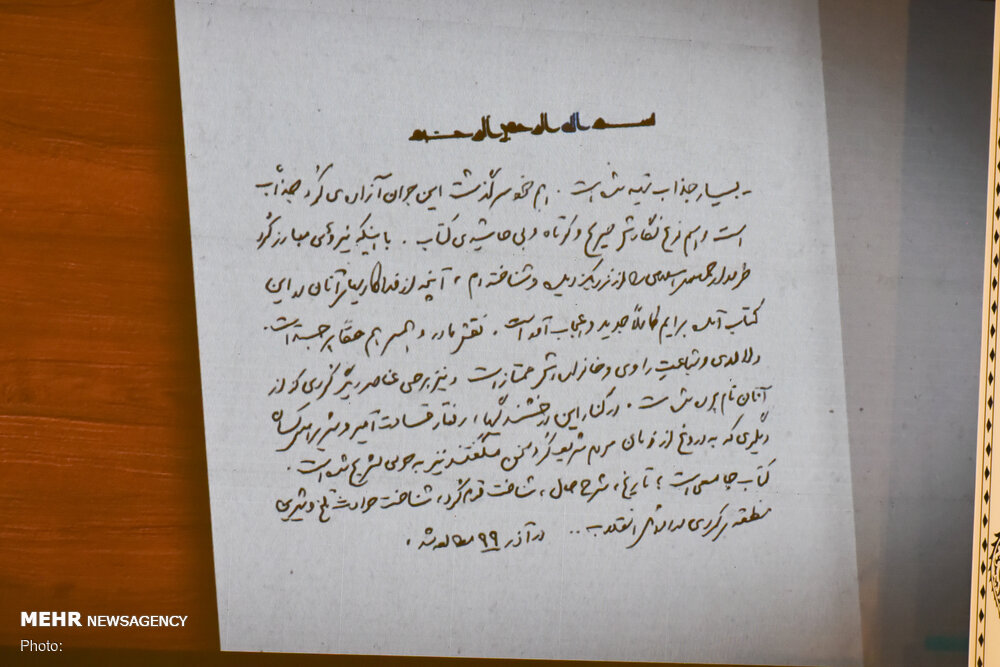 بسم الله الرحمن الرحیم
- بسیار جذاب تهیه شده است. هم خود سرگذشت این جوان آزاده‌ی کُرد جذّاب
است و هم نوع نگارش صریح و کوتاه و بی حاشیه‌ی کتاب. با اینکه نیروهای مبارز کُرد
طرفدار جمهوری اسلامی را از نزدیک دیده و شناخته‌ام، آنچه از فداکاریهای آنان در این
کتاب آمده برایم کاملاً جدید و اعجاب آور است. نقش مادر و همسر هم حقّاً برجسته است.
دلاوری و شجاعتِ راوی و خانواده‌اش ممتاز است و نیز برخی عناصر دیگر کُردی که از
آنان نام برده شده است. در کنار این درخشندگیها، رفتار قساوت آمیز و شریرانه‌ی کسان
دیگری که به دروغ از زبان مردم شریف کُرد سخن میگفتند نیز به خوبی تشریح شده است.
کتاب جامعی است؛ تاریخ، شرح حال، شناخت قوم کُرد، شناخت حوادث تلخ و شیرین
منطقه‌ی کردی در اوائل انقلاب.. در آذر ۹۹ مطالعه شد.
MEHR NEWSAGENCY
Photo: